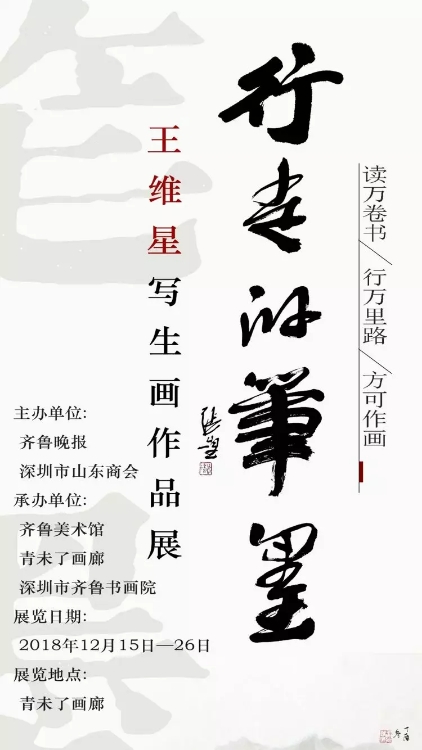 行走的筆墨
王维星写生画作品展
读万卷书/行万里路/方可作画
主办单位:
齐鲁晚报
深圳市山东商会
承办单位:
齐鲁美术馆
青未了画廊
深圳市齐鲁书画院
展览日期:
2018年12月15日—26日
展览地点:
青未了画廊